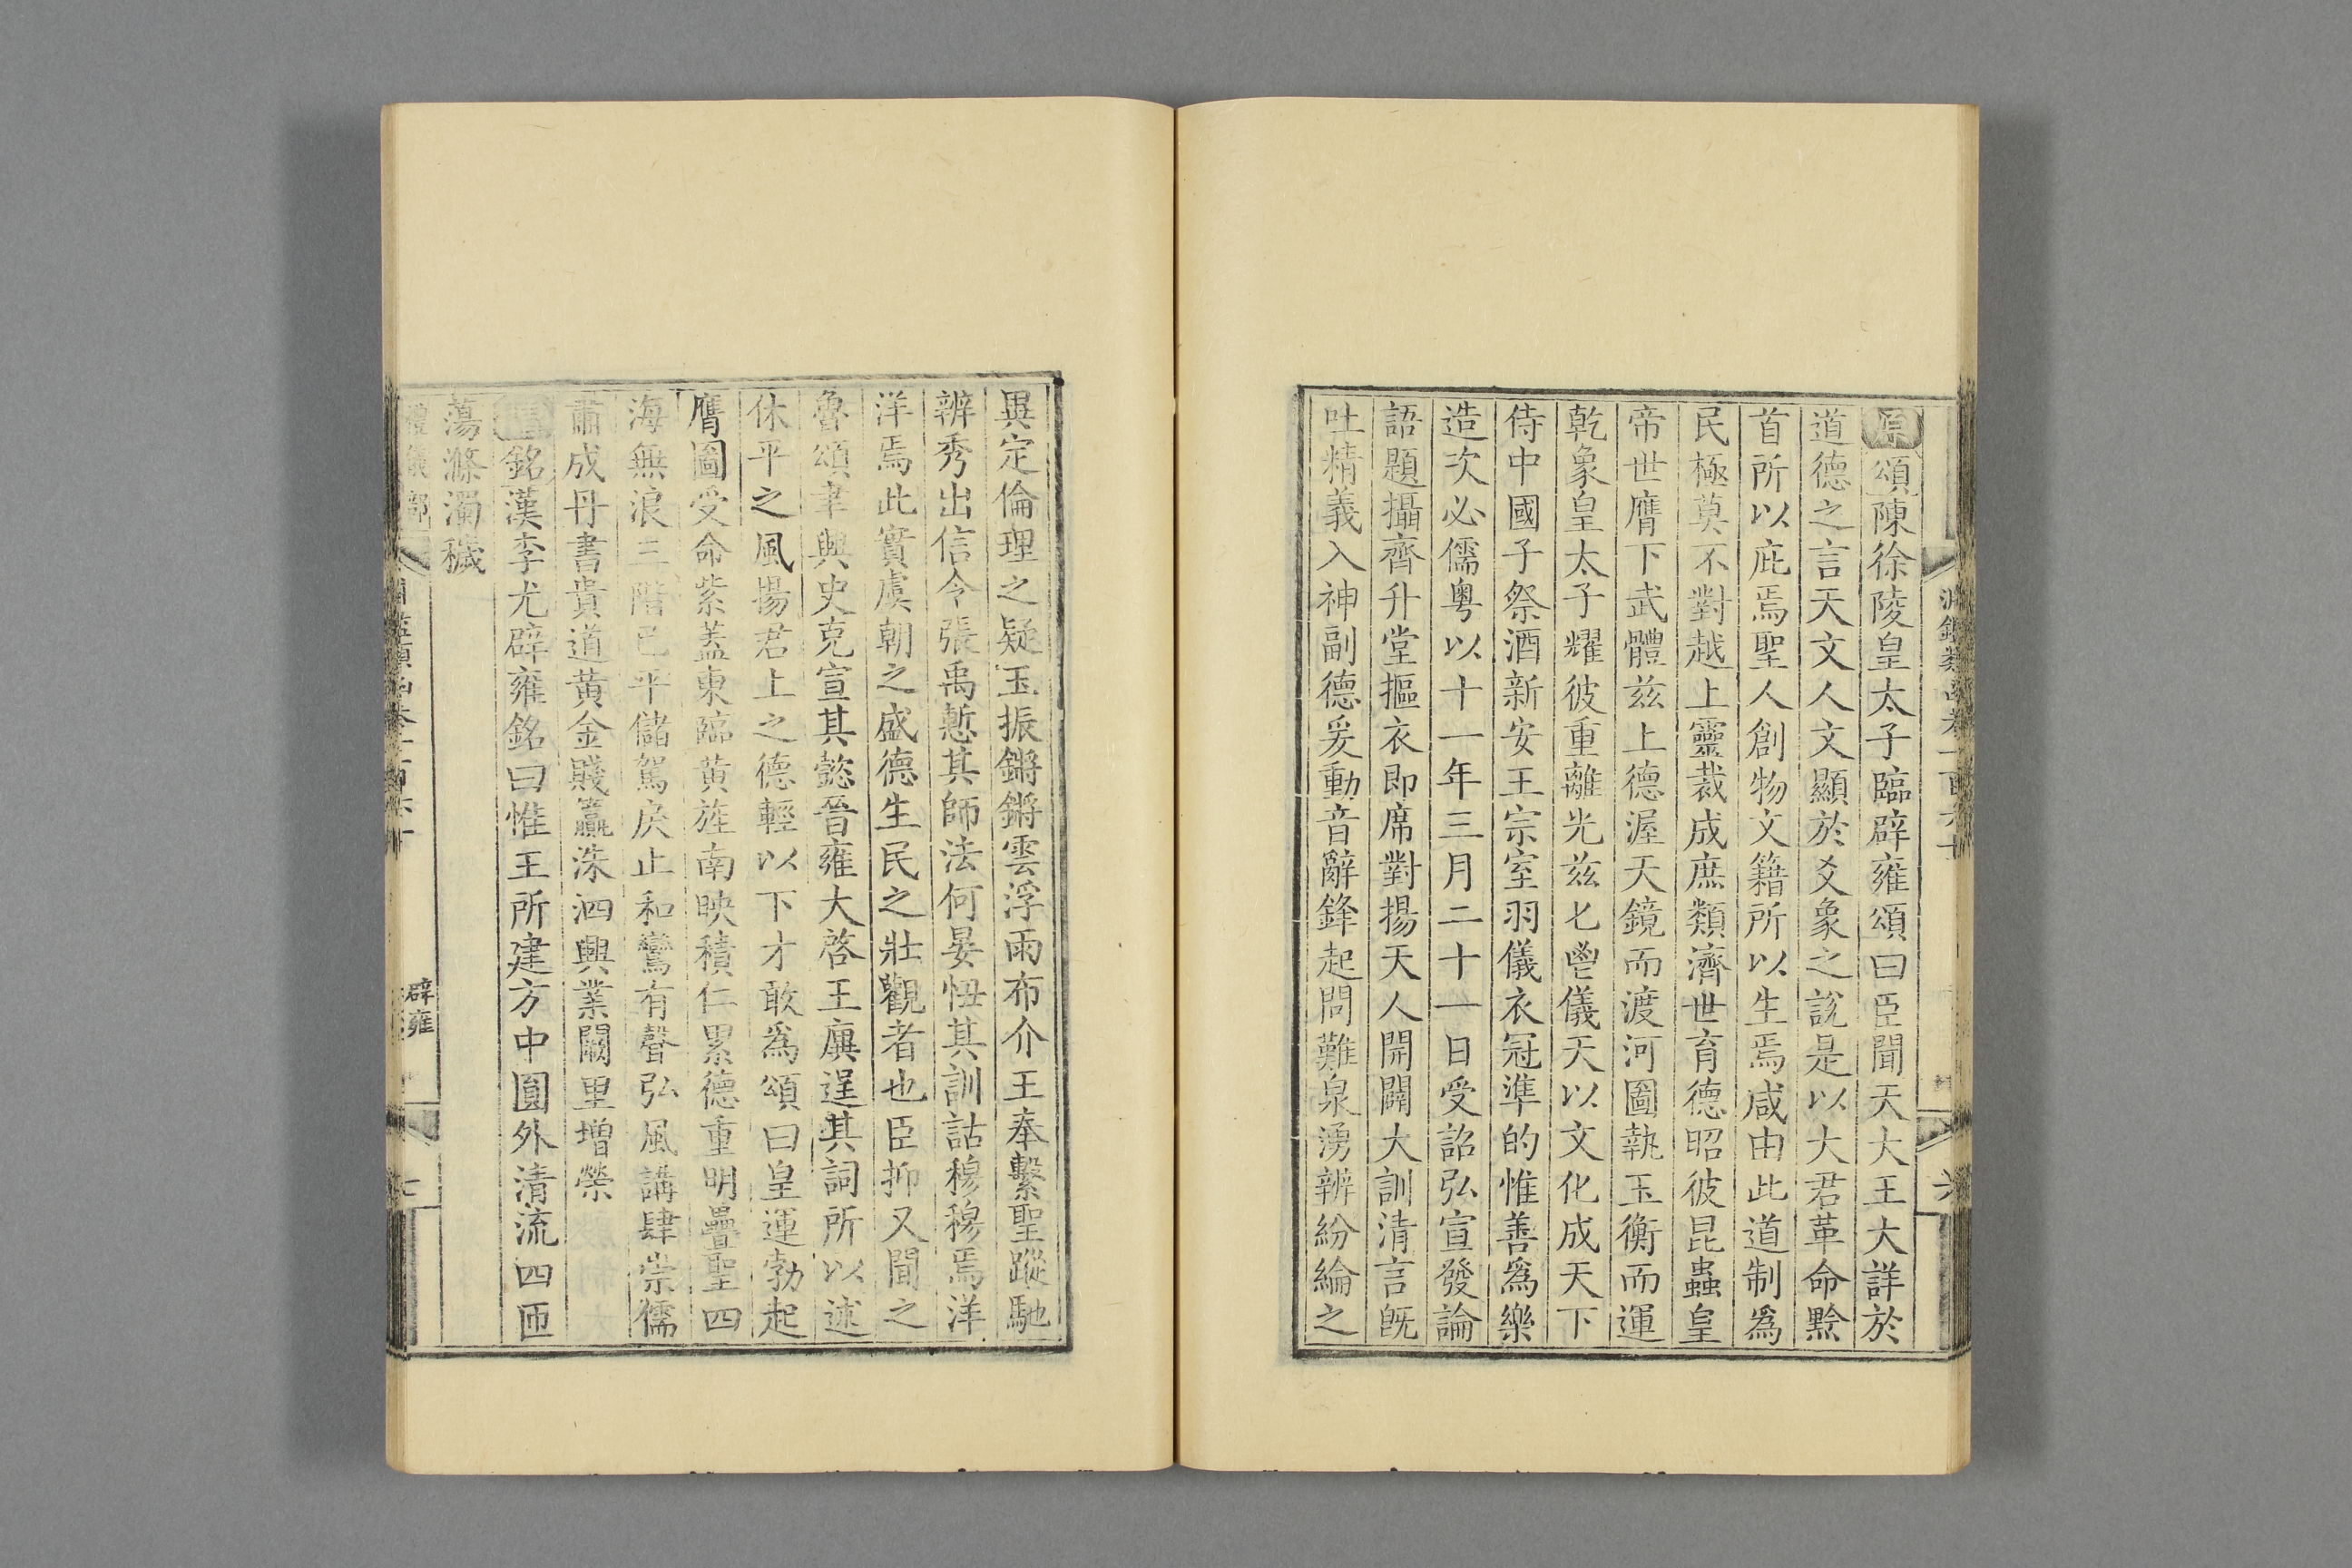 原頌陳徐陵皇太子臨辟雍頌曰臣聞天大王大詳於
道德之言天文人文顯於爻象之說是以大君革命黔
首所以庇焉聖人創物文籍所以生焉咸由此道制爲
民極莫不對越上靈裁成庶類濟世育德昭彼昆蟲皇
帝世膺下武體玆上德渥天鏡而渡河圖執玉衡而運
乾象皇太子耀彼重離光玆匕鬯儀天以文化成天下
侍中國子祭酒新安王宗室羽儀衣冠準的惟善爲樂
造次必儒粵以十一年三月二十一日受詔弘宣發論
語題攝齊升堂摳衣即席對揚天人開闢大訓清言既
吐精義入神副德爰動音辭鋒起問難泉湧辨紛綸之
異定倫理之疑玉振鏘鏘雲浮雨布介王奉繫聖蹤馳
辨秀出信令張禹慙其師法何晏忸其訓詁穆穆焉洋
洋焉此實虞朝之盛德生民之壯觀者也臣抑又聞之
魯頌聿興史克宣其懿晉雍大啓王廙逞其詞所以述
休平之風揚君上之德輕以下才敢爲頌曰皇運勃起
膺圖受命紫蓋東臨黃旌南映積仁累德重明疊聖四
海無浪三階已平儲駕戾止和鸞有聲弘風講肆崇儒
肅成丹書貴道黃金賤籯洙泗興業闕里增榮
銘漢李尤辟雍銘曰惟王所建方中圓外清流四匝
蕩滌濁穢
禮儀部
辟雍
七
六